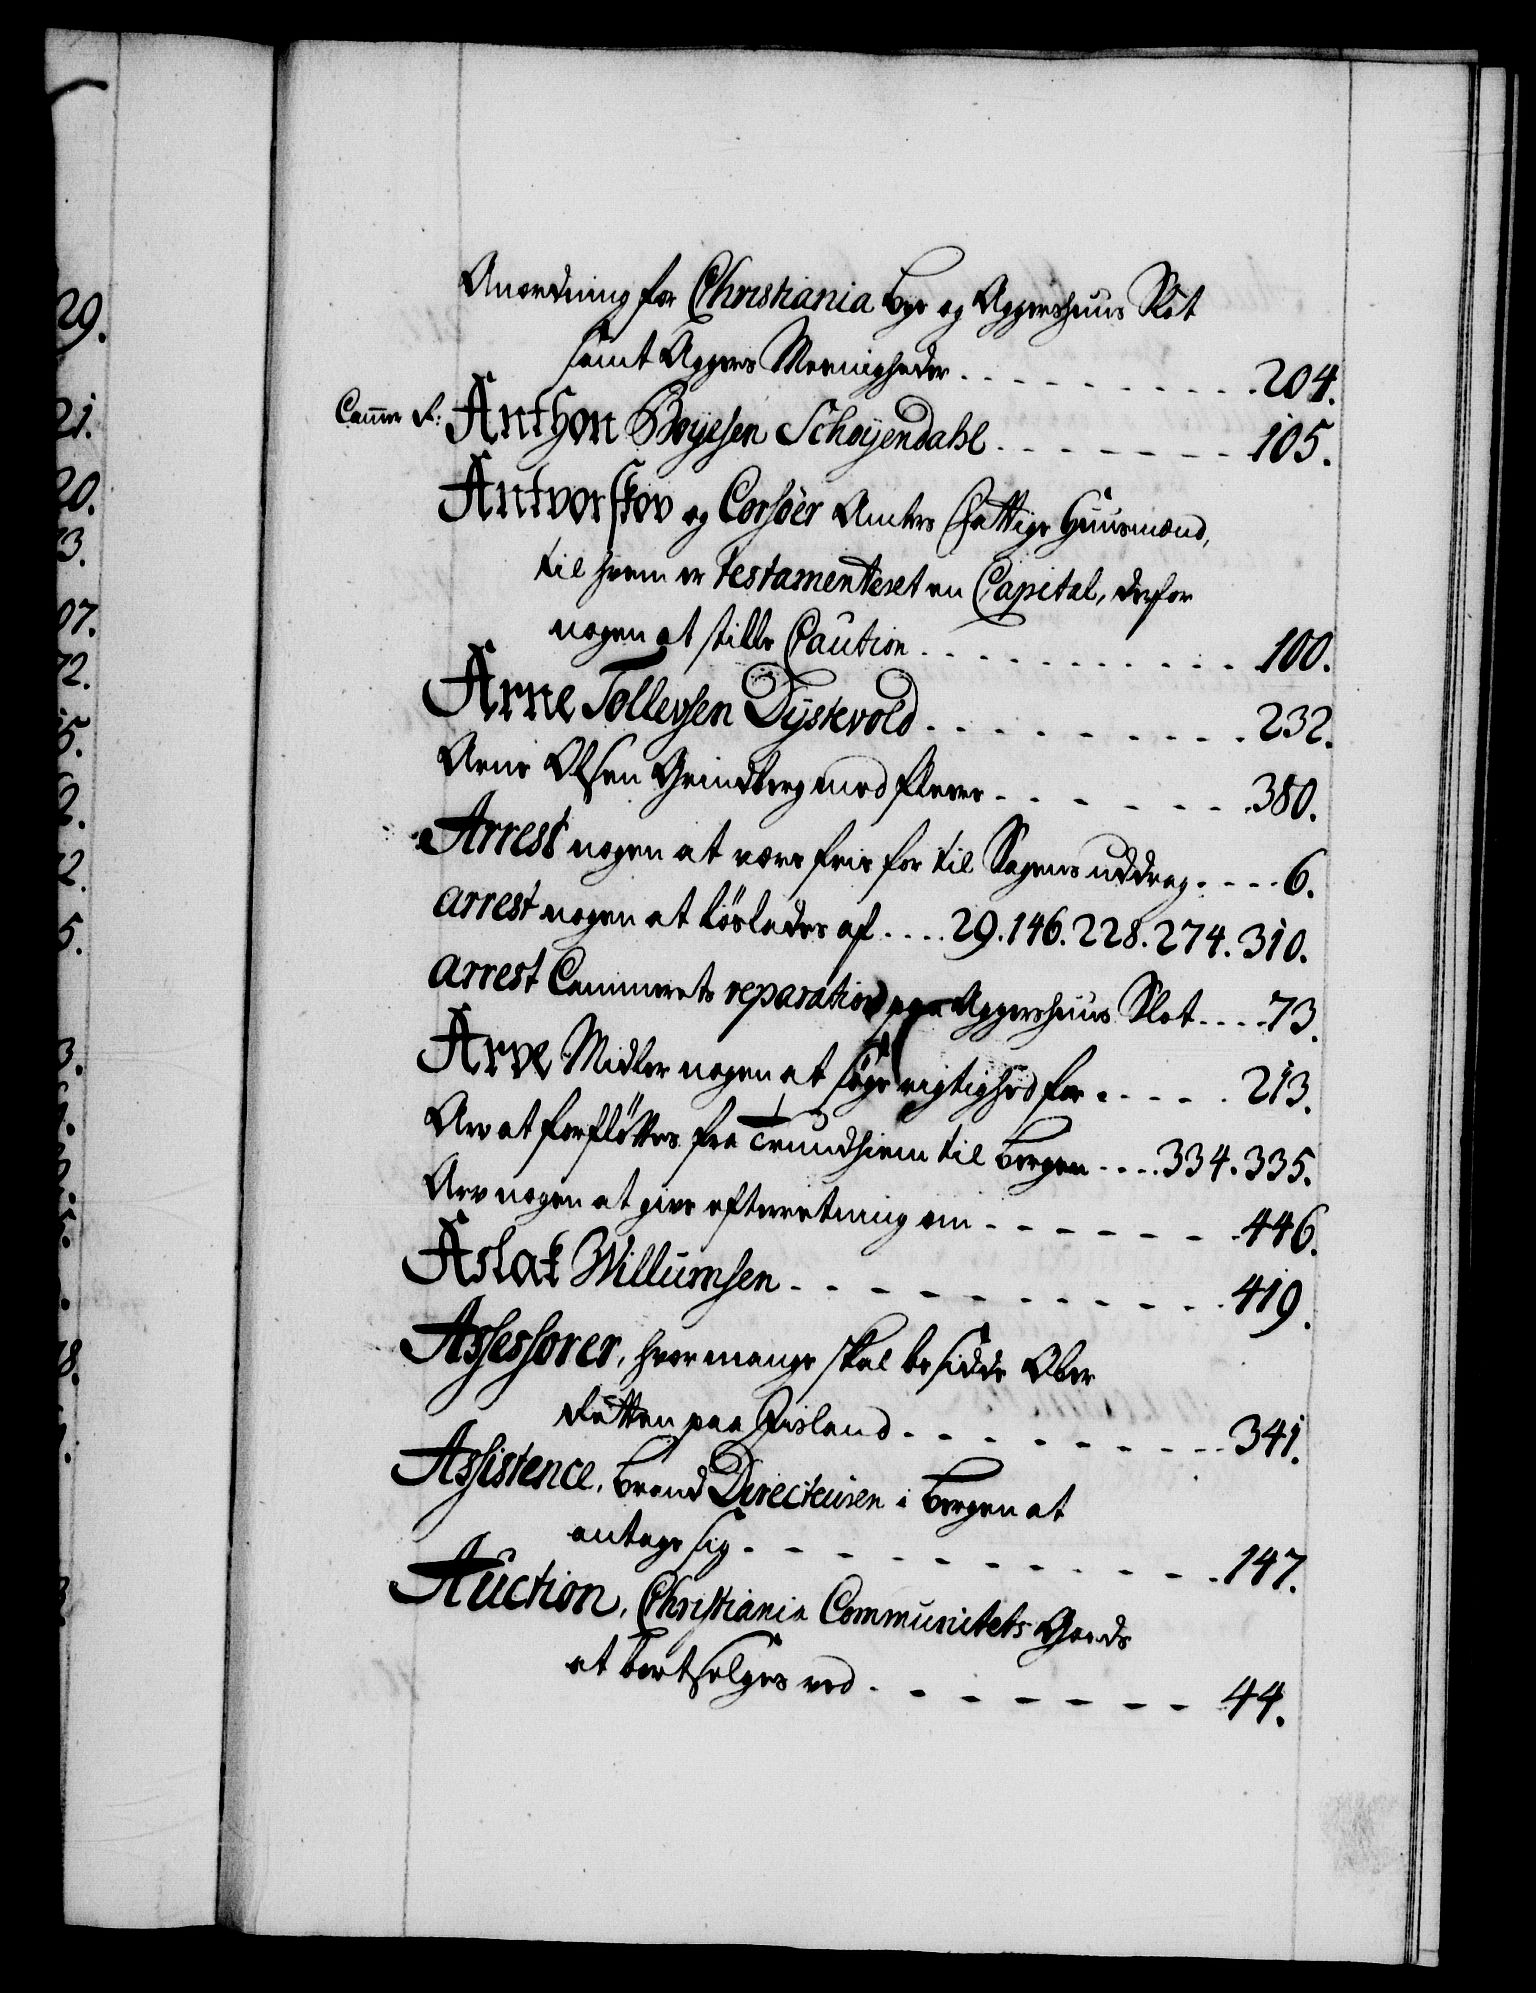 29.
21.
20.
3.
07.
2.
5.
2.
2.
5.
8.
Anordning for Christiania bye og Aggershuus Slot
samt Aggers Meenigheder . . . . . . . . . . 204.
Anthon Boyesen Schoyendahl . . . . . . . 105.
Antvorskov og Corsöer Amters fattige Huusmænd,
til hvem er testamenteret en Capital, derfor
nogen at stille Caution . . . . . . . . . . . 100.
Arne Tollevsen Dystevold . . . . . . . . . . 232.
Arne Olsen Grindberg med fleere . . . . . . . 380.
Arrest nogen at være frie for til Sagens uddrag . . . . 6.
arrest nogen at löslades af . . . . 29. 146. 228. 274. 310.
arrest Cammerets reparation paa Aggershuus Slot . . . . 73.
Arve Midler nogen at söge rigtighed for . . . . . 213.
Arv at forflöttes fra Trundhiem til Bergen . . . . 334. 335.
Arv nogen at give efterretning om . . . . . . . 446.
Aslak Willumsen . . . . . . . . . . . 419.
Assessorer, hvor mange skal besidde Ober
Retten paa Iisland . . . . . . . . . . 341.
Assistence, Brand Directeuren i Bergen at
antage sig . . . . . . . . . . . 147.
Auction, Christiania Communitets Gods
at bortselges ved . . . . . . . 44.